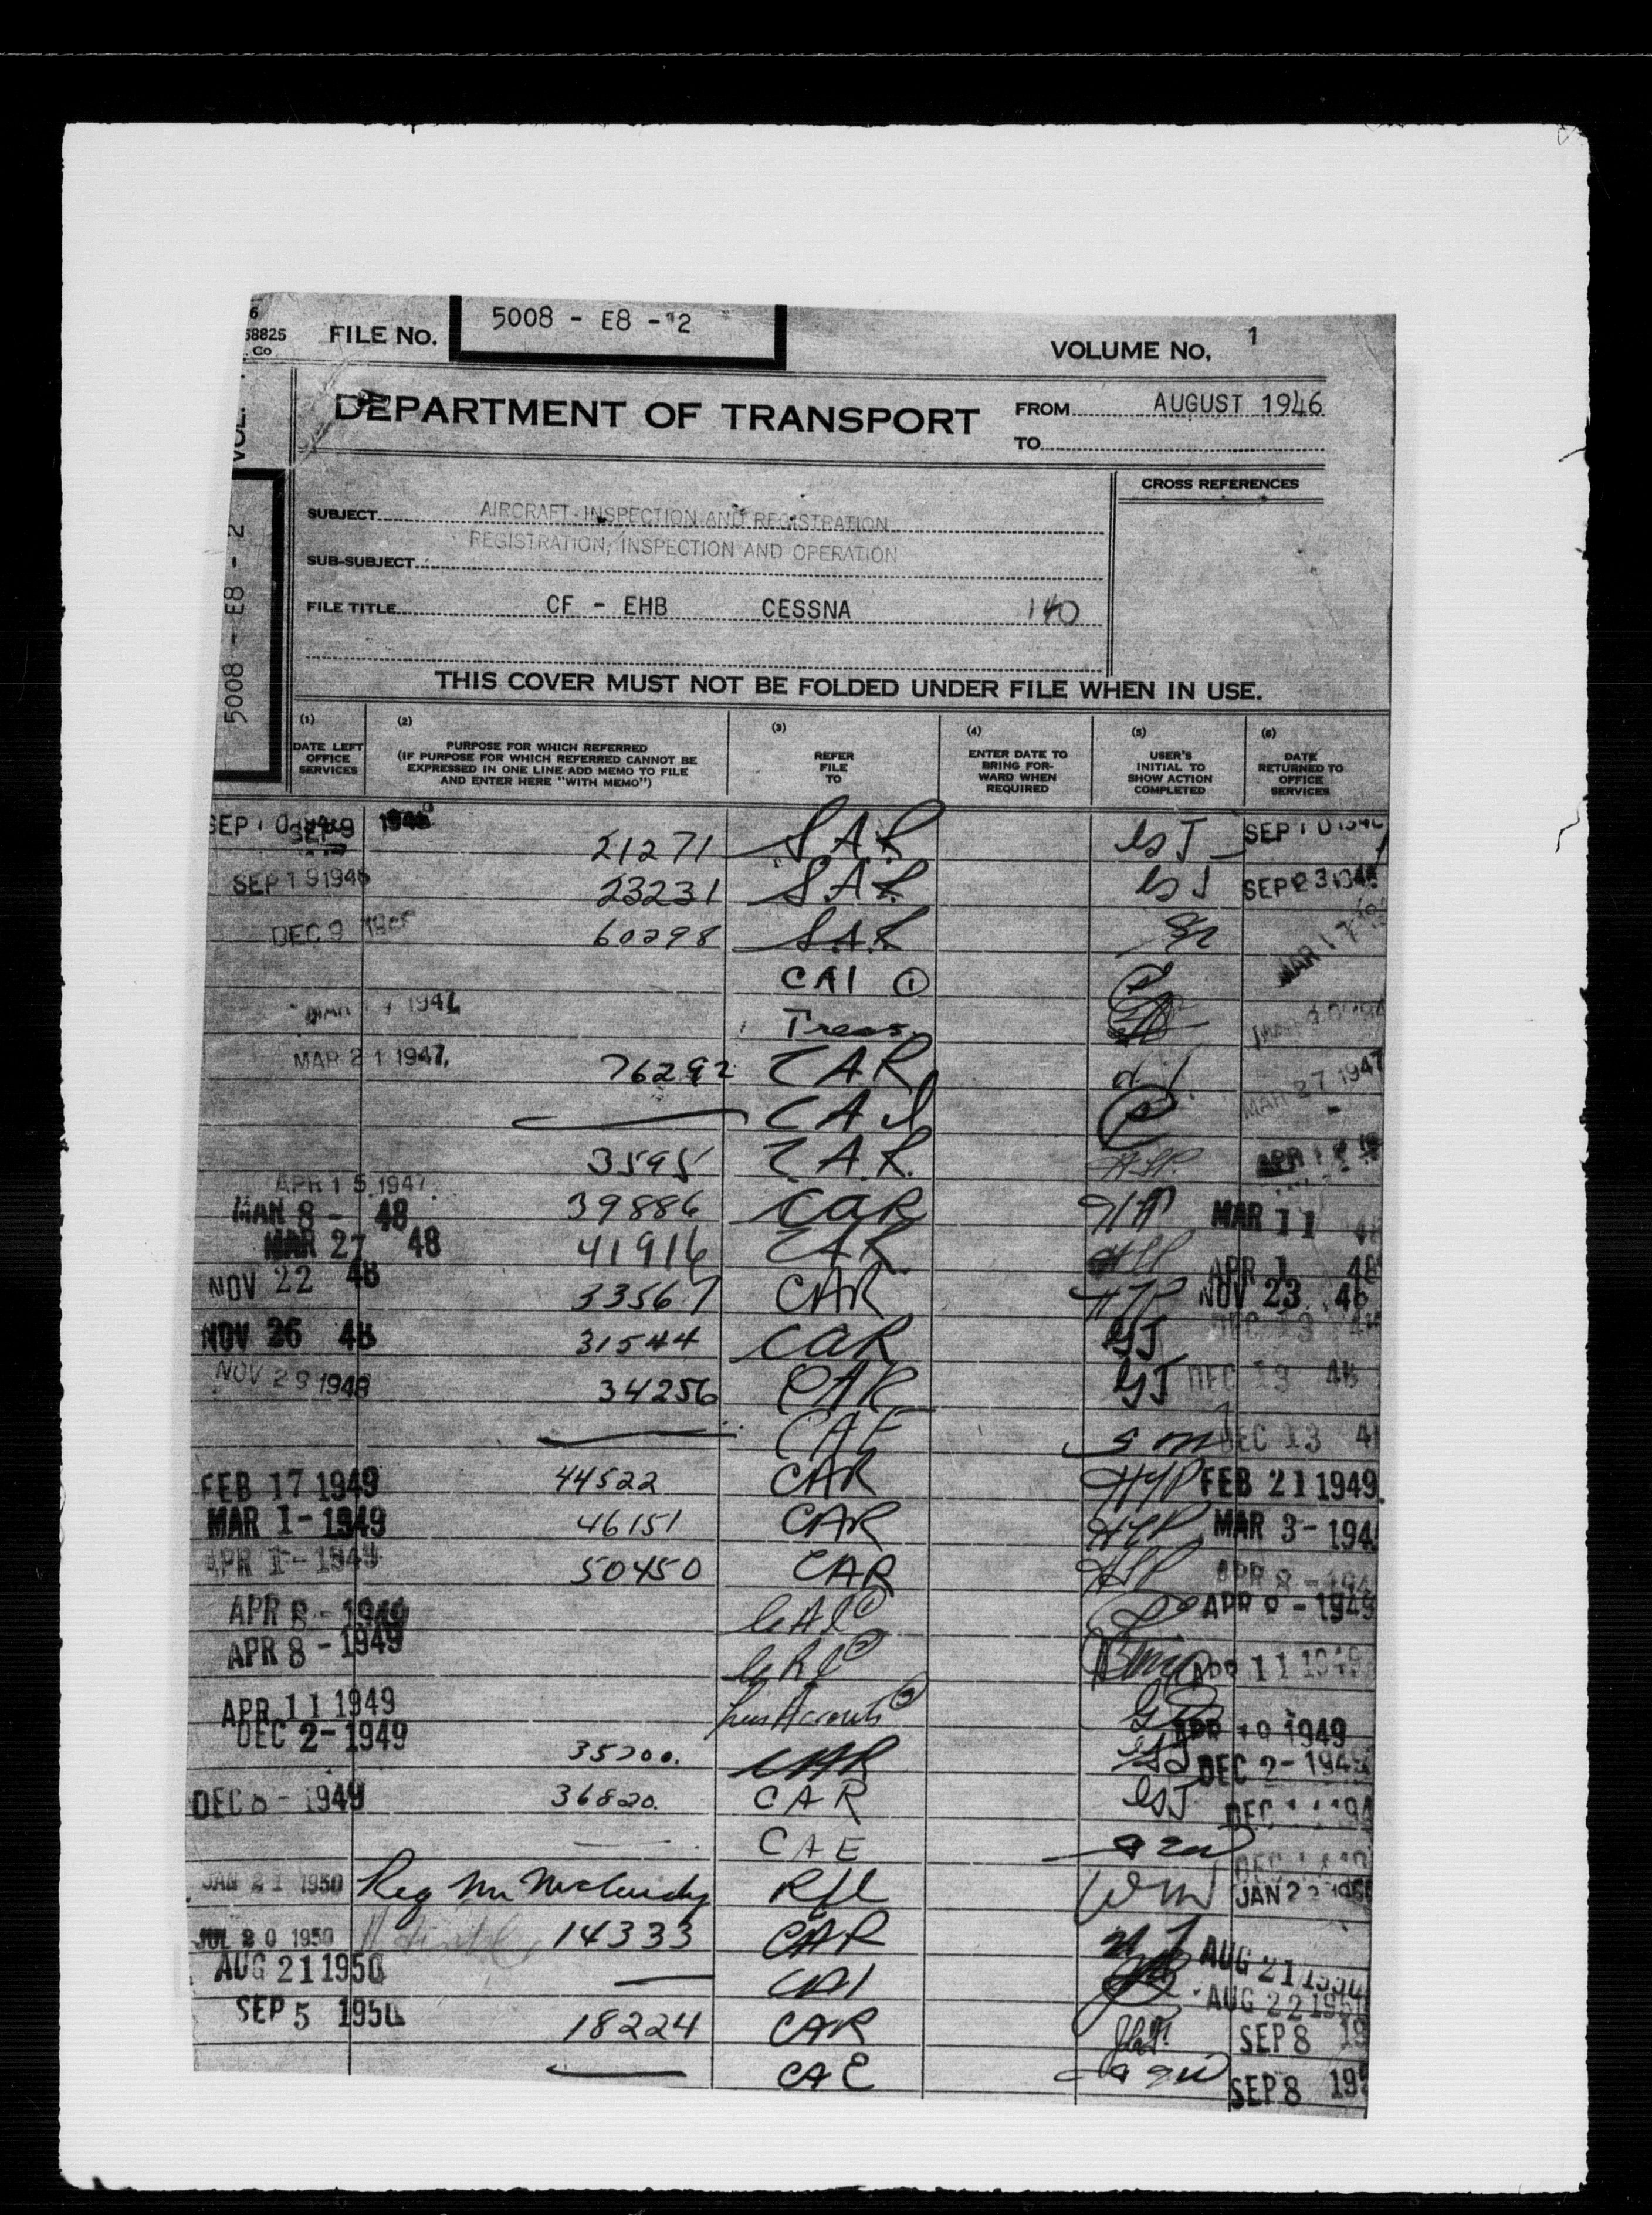 6
68825
. Co
FILE No. 5008 - E8 - 2
VOLUME No. 1
VOL.
DEPARTMENT OF TRANSPORT
FROM AUGUST 1946
TO
CROSS REFERENCES
SUBJECT AIRCRAFT-INSPECTION AND REGISTRATION
REGISTRATION, INSPECTION AND OPERATION
SUB-SUBJECT
5008 - E8 - 2
FILE TITLE CF - EHB CESSNA 140
THIS COVER MUST NOT BE FOLDED UNDER FILE WHEN IN USE.
(1) DATE LEFT OFFICE SERVICES
(2) PURPOSE FOR WHICH REFERRED (IF PURPOSE FOR WHICH REFERRED CANNOT BE EXPRESSED IN ONE LINE ADD MEMO TO FILE AND ENTER HERE "WITH MEMO")
(3) REFER FILE TO
(4) ENTER DATE TO BRING FORWARD WHEN REQUIRED
(5) USER'S INITIAL TO SHOW ACTION COMPLETED
(6) DATE RETURNED TO OFFICE SERVICES
21271 SAR GSJ SEP 10
SEP 19 1946 23231 SAR GSJ SEP 23
DEC 9 60298 SAR MAR 17
CAI 1
1947 Treas.
MAR 21 1947 76292 CAR MAR 27 1947
CAI
3595 CAR APR
APR 15 1947
MAR 8 - 48 39886 CAR MAR 11
MAR 27 48 41916 CAR APR 1 48
NOV 22 48 33567 CAR NOV 23 48
NOV 26 48 31544 CAR GSJ DEC 13 48
NOV 29 1948 34256 CAR GSJ DEC 13 48
CAE DEC 13 4
FEB 17 1949 44522 CAR HYP FEB 21 1949
MAR 1 - 1949 46151 CAR MAR 3 - 194
APR 1 - 1949 50450 CAR APR 8 - 194
APR 8 - 1949 1 APR 8 - 1949
APR 8 - 1949 2 APR 11 1949
APR 11 1949 3 APR 1949
DEC 2 - 1949 35200. CAR GSJ DEC 2 - 1949
DEC 8 - 1949 36820. CAR GSJ DEC
CAE
JAN 21 1950 Reg Mr McCurdy JAN 1950
JUL 20 1950 14333 CAR AUG 21 1950
AUG 21 1950 CAI AUG 22 195
SEP 5 1950 18224 CAR SEP 8 19
CAE SEP 8 195